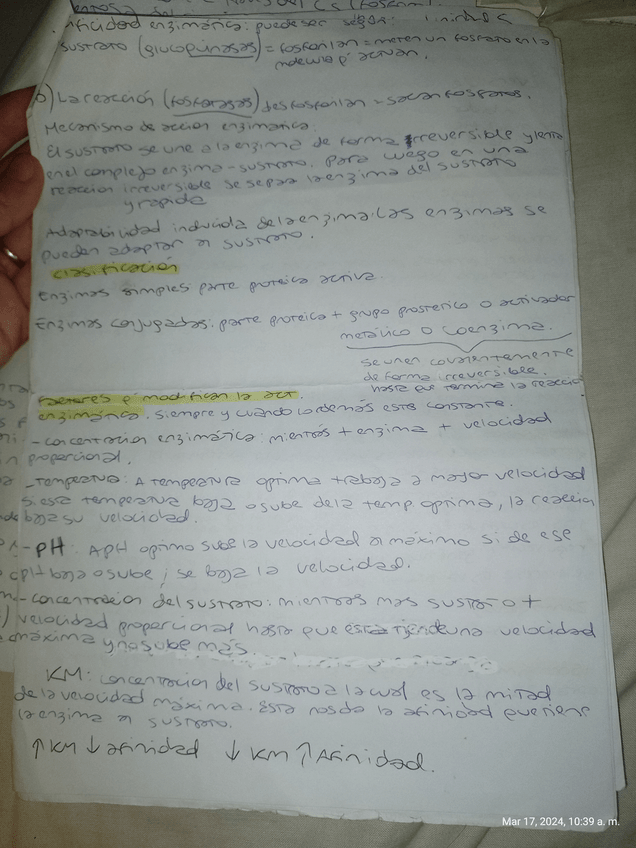 enzimática: puede ser según:
sustrato (glucoquinasas) = fosforilan = meten un fosfato en la
molecula q' actuan.
b) La reacción (fosfatasas) desfosforilan = sacan fosfatos.
Mecanismo de acción enzimática:
El sustrato se une a la enzima de forma irreversible y lenta
en el complejo enzima-sustrato. Para luego en una
reacción irreversible se separa la enzima del sustrato
y rapida
Adaptabilidad inducida de la enzima: Las enzimas se
pueden adaptar al sustrato.
Clasificación
Enzimas simples: parte proteica activa.
Enzimas conjugadas: parte proteica + grupo prosterico o activador
metálico o coenzima.
se unen covalentemente
de forma irreversible.
hasta que termina la reacción
factores q' modifican la act.
enzimática. siempre y cuando lo demás este constante.
- concentración enzimática: mientrás + enzima + velocidad
proporcional.
- Temperatura: A temperatura optima trabaja a mayor velocidad
Si esta temperatura baja o sube de la temp. optima, la reacción
baja su velocidad.
- PH: A PH optimo sube la velocidad al máximo si de ese
PH baja o sube, se baja la velocidad.
- concentración del sustrato: mientras mas sustrato +
velocidad proporcional hasta que una velocidad
máxima y no sube más.
KM: concentración del sustrato a la cual es la mitad
de la velocidad máxima. Esta nos da la afinidad que tiene
la enzima al sustrato.
↑ KM ↓ afinidad ↓ KM ↑ Afinidad.
Mar 17, 2024, 10:39 a. m.